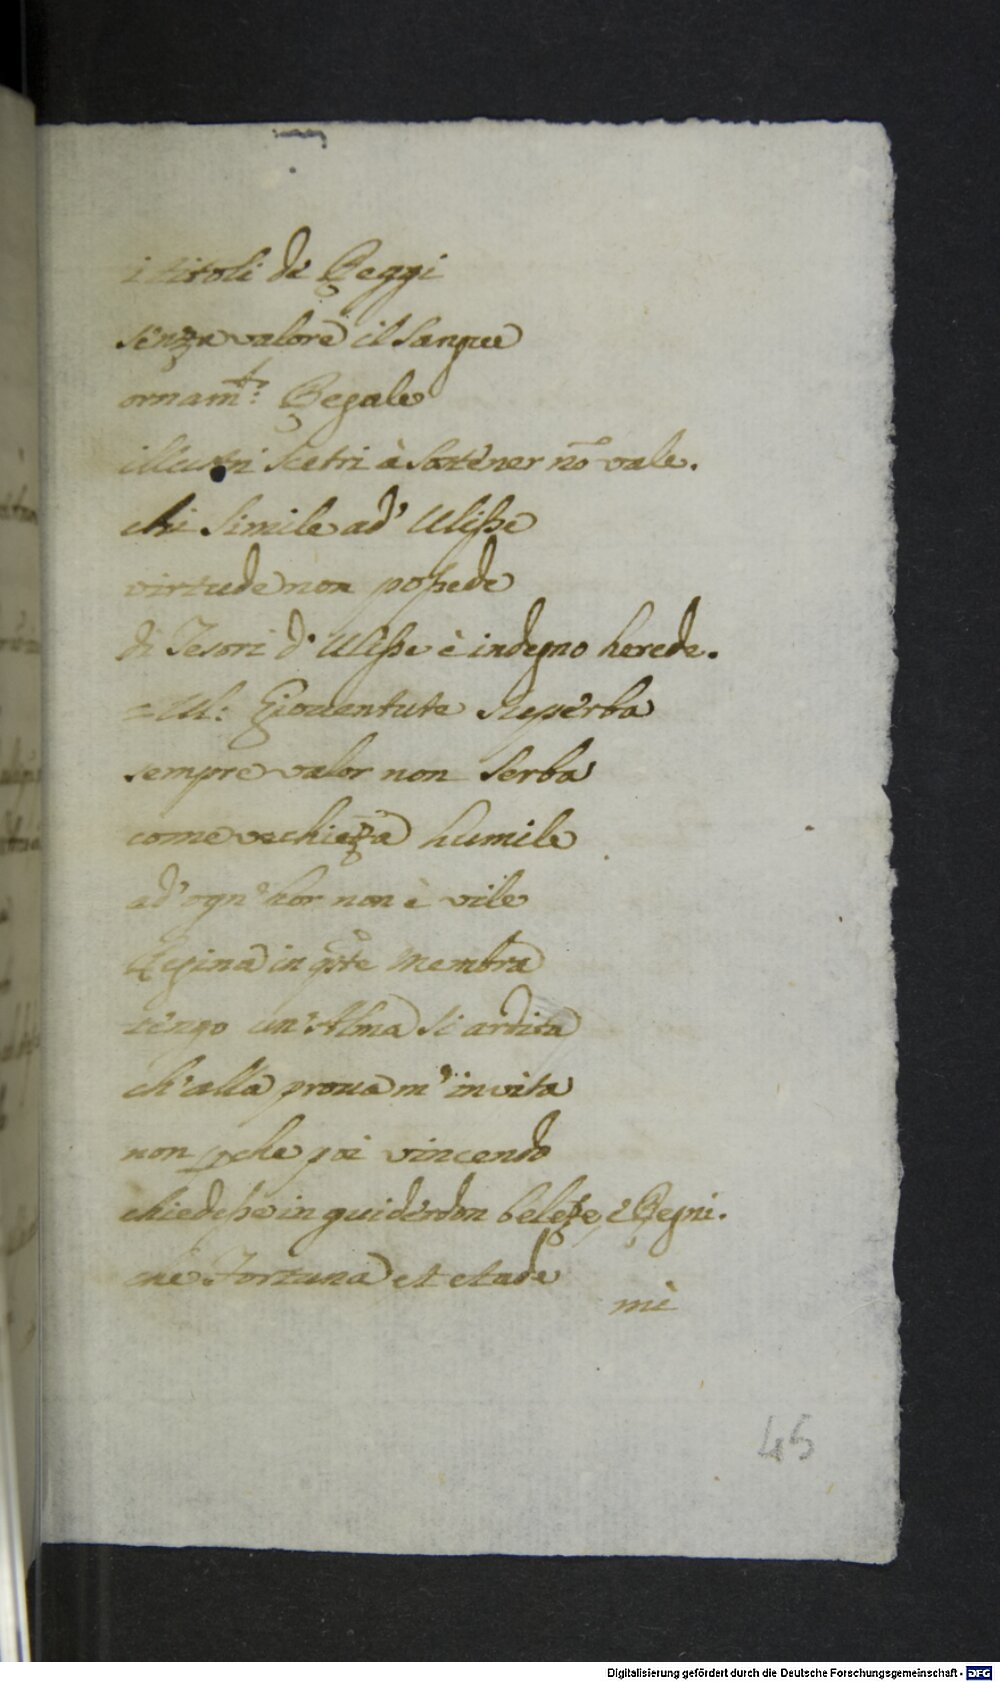 i titoli dè Reggi
senza valore il sangue
ornam.to: Regale
illustri scetri à sostener nō vale.
chi simile ad' Ulisse
virtude non possede
di Tesori d' Ulisse è indegno herede.
= Ul: Gioventute superba
sempre valor non serba
come vechieza humile
ad' ogn' hor non è vile
Regina in qste membra
tengo un' Alma si ardita
ch' alla proua m' invita
non pche poi vincendo
chiedesse in guiderdon beleze, è Regni.
che Fortuna et etade
mè
45
Digitalisierung gefördert durch die Deutsche Forschungsgemeinschaft - DFG